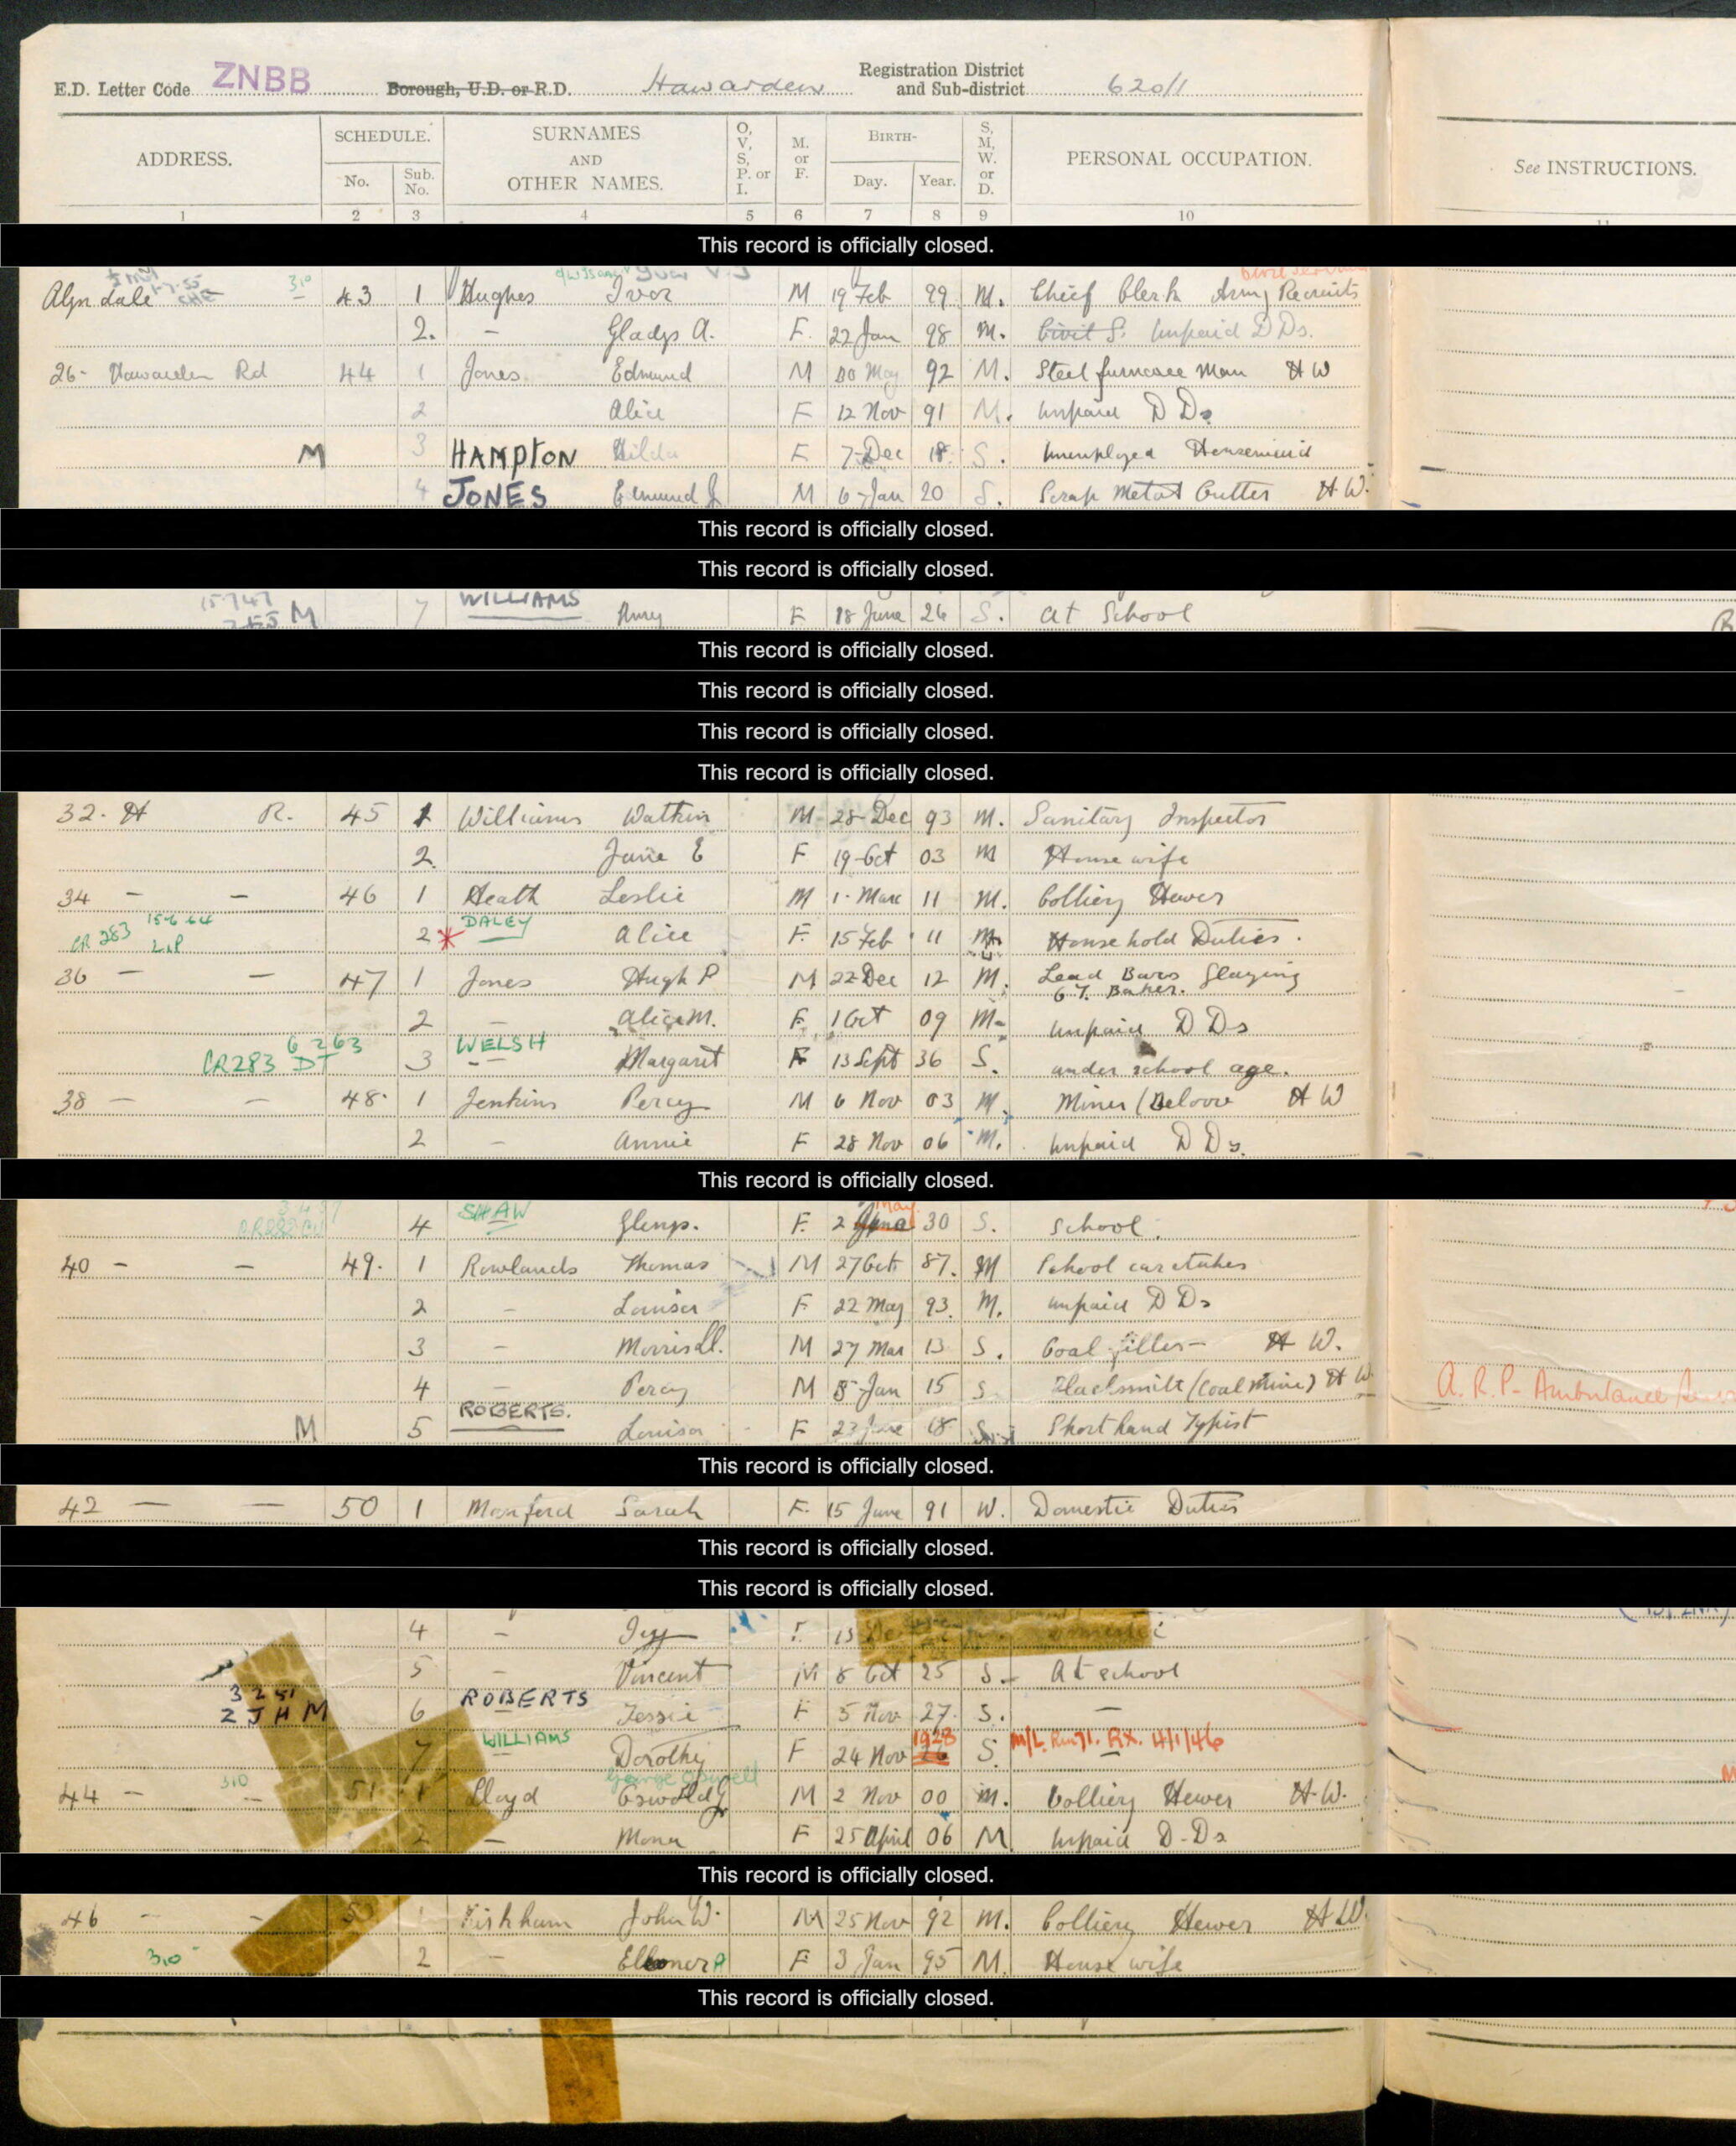 E.D. Letter Code ZNBB Borough, U.D. or R.D. Hawarden Registration District and Sub-district 620/1
ADDRESS. SCHEDULE. No. Sub. No. SURNAMES AND OTHER NAMES. O, V, S, P. or I. M. or F. BIRTH- Day. Year. S, M, W. or D. PERSONAL OCCUPATION. See INSTRUCTIONS.
1 2 3 4 5 6 7 8 9 10 11
This record is officially closed.
Alyn dale 43 1 Hughes Ivor M 19 Feb 99 M. Chief Clerk Army Recruits
2. - Gladys A. F. 22 Jan 98 M. Civil S. Unpaid D Ds.
26- Hawarden Rd 44 1 Jones Edmund M May 92 M. Steel furnace man H W
2 Alice F 12 Nov 91 M. Unpaid D Ds
M 3 HAMPTON Hilda F 7 Dec 18 S. Unemployed Housemaid
4 JONES Edmund J M 6 Jan 20 S. Scrap Metal Cutter H W.
This record is officially closed.
This record is officially closed.
M 7 WILLIAMS F 18 June 26 S. at School
This record is officially closed.
This record is officially closed.
This record is officially closed.
This record is officially closed.
32. H R. 45 1 Williams Watkin M 28 Dec 93 M. Sanitary Inspector
2. Jane E F 19 Oct 03 M House wife
34 - - 46 1 Heath Leslie M 1 Mar 11 M. Colliery Hewer
CR 283 15 6 64 2 DALEY Alice F. 15 Feb 11 M. Household Duties.
36 - - 47 1 Jones Hugh P M 22 Dec 12 M. Lead Bars
2 - Alice M. F 1 Oct 09 M- Unpaid D Ds
CR283 6 2 63 DT 3 WELSH - Margaret F 13 Sept 36 S. under school age.
38 - - 48. 1 Jenkins Percy M 6 Nov 03 M. Miner H W
2 - Annie F 28 Nov 06 M. Unpaid D Ds.
This record is officially closed.
4 SHAW Glenys. F. 2 June May 30 S. School.
40 - - 49. 1 Rowlands Thomas M 27 Oct 87. M School caretaker
2 - Louisa F 22 May 93. M. unpaid D Ds
3 - Morris Ll. M 27 Mar 13 S. Coal filler- H W.
4 - Percy M 5 Jan 15 S. Blacksmith (Coal Mine) H W A.R.P- Ambulance
M 5 ROBERTS. Louisa F 23 June 18 S. Short hand Typist
This record is officially closed.
42 - - 50 1 Sarah F. 15 June 91 W. Domestic Duties
This record is officially closed.
This record is officially closed.
4 - Ivy F 13
5 - Vincent M 8 Oct 25 S- At school
3 2 51 Z J H M 6 ROBERTS Jessie F 5 Nov 27. S. -
7 WILLIAMS Dorothy F 24 Nov 1928 S 4/1/46
44 - - 310 51 1 Lloyd Oswald G M 2 Nov 00 M. Colliery Hewer H.W.
2 - Mona F 25 April 06 M Unpaid D-Ds
This record is officially closed.
46 - - Kirkham John W. M 25 Nov 92 M. Colliery Hewer H W
310 2 - Eleanor A F 3 Jan 95 M. House wife
This record is officially closed.